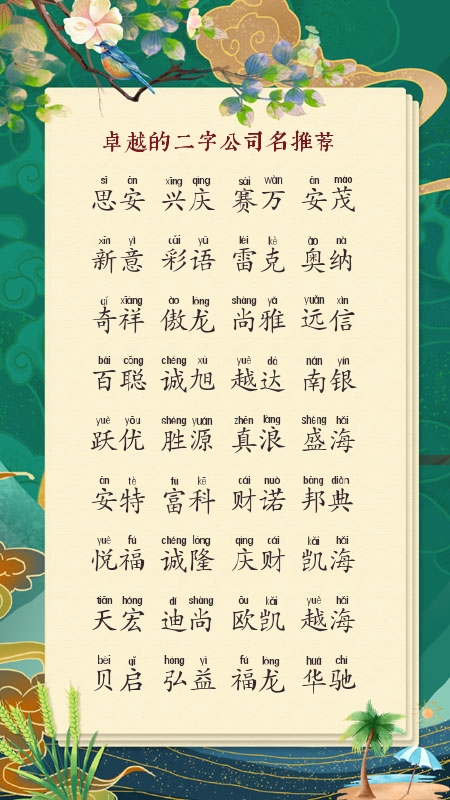 卓越的二字公司名推荐
sī ān xīng qìng sài wàn ān mào
思安 兴庆 赛万 安茂
xīn yì cǎi yǔ léi kè ào nà
新意 彩语 雷克 奥纳
qí xiáng ào lóng shàng yǎ yuǎn xìn
奇祥 傲龙 尚雅 远信
bǎi cōng chéng xù yuè dá nán yín
百聪 诚旭 越达 南银
yuè yōu shèng yuán zhēn làng shèng hǎi
跃优 胜源 真浪 盛海
ān tè fù kē cái nuò bāng diǎn
安特 富科 财诺 邦典
yuè fú chéng lóng qìng cái kǎi hǎi
悦福 诚隆 庆财 凯海
tiān hóng dí shàng ōu kǎi yuè hǎi
天宏 迪尚 欧凯 越海
bèi qǐ hóng yì fú lóng huá chí
贝启 弘益 福龙 华驰